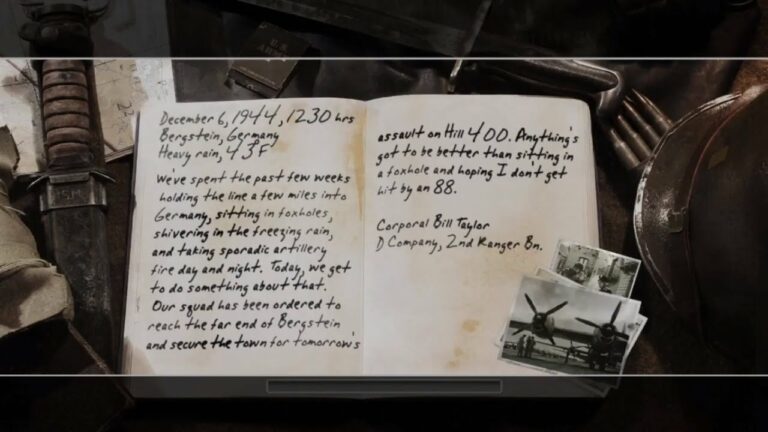 December 6, 1944, 1230 hrs
Bergstein, Germany
Heavy rain, 43F
We've spent the past few weeks
holding the line a few miles into
Germany, sitting in foxholes,
shivering in the freezing rain,
and taking sporadic artillery
fire day and night. Today, we get
to do something about that.
Our squad has been ordered to
reach the far end of Bergstein
and secure the town for tomorrow's
assault on Hill 400. Anything's
got to be better than sitting in
a foxhole and hoping I don't get
hit by an 88.
Corporal Bill Taylor
D Company, 2nd Ranger Bn.
U.S.
ARMY